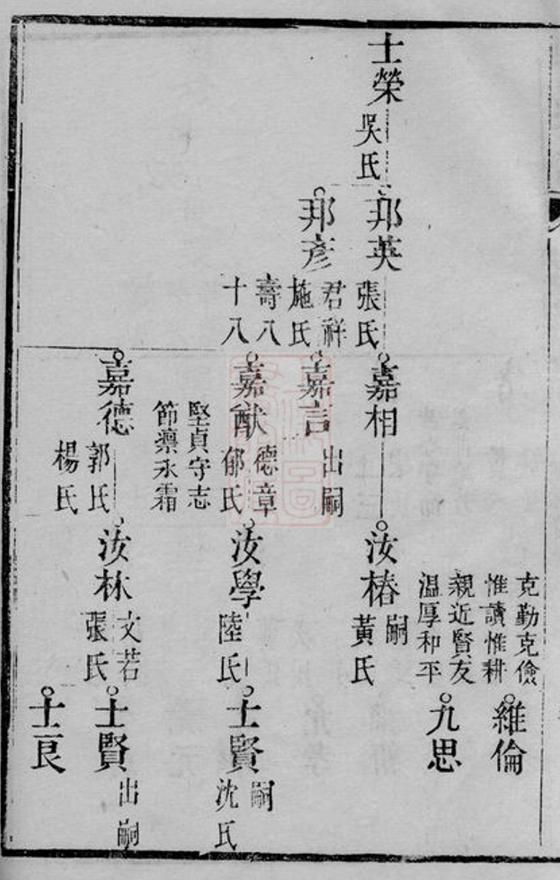 士榮
吳氏
邦英
張氏
邦彥
君祥
施氏
壽八
十八
嘉相
嘉言
出嗣
嘉猷
德章
郁氏
堅貞守志
節凜氷霜
嘉德
郭氏
楊氏
汝椿
嗣
黃氏
汝學
陸氏
汝林
文若
張氏
維倫
克勤克儉
惟讀惟耕
九思
親近賢友
温厚和平
士賢
嗣
沈氏
士賢
出嗣
士良